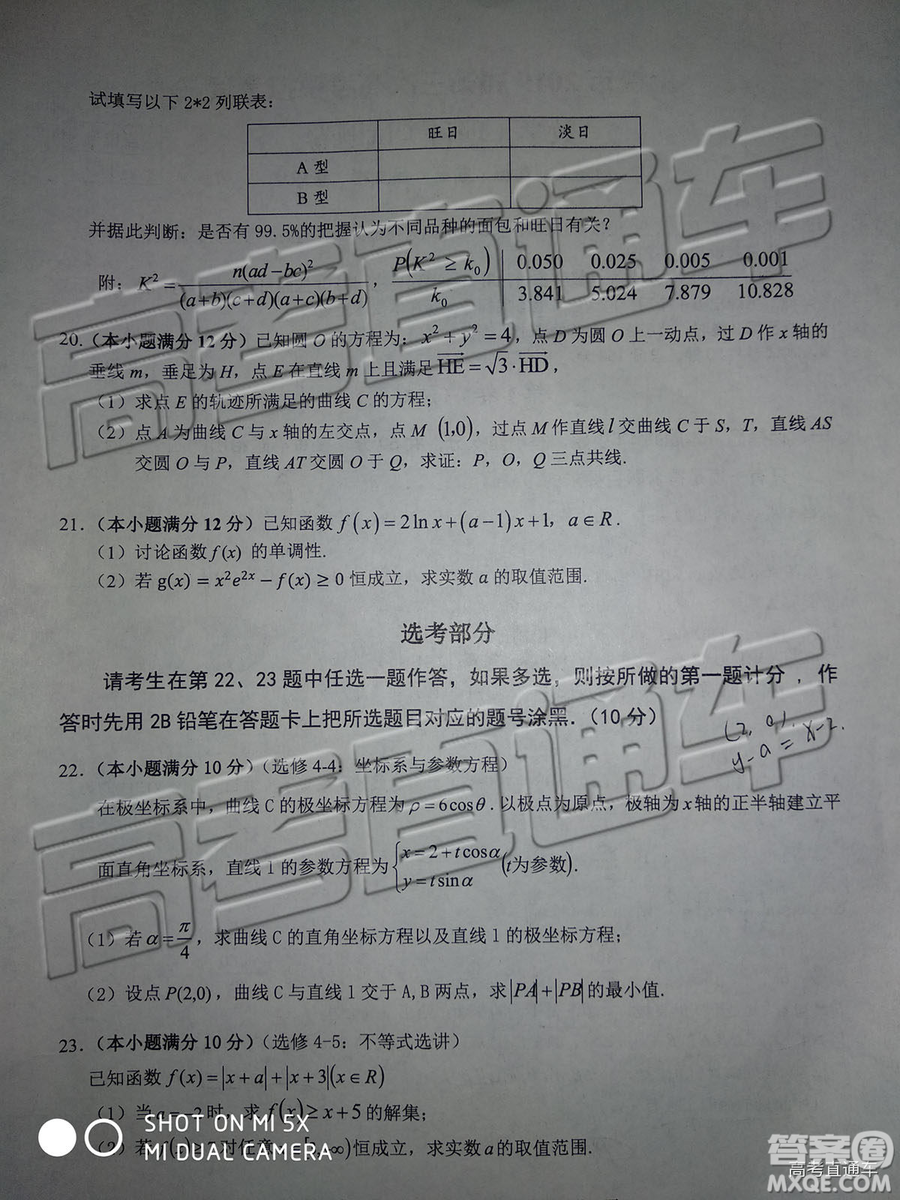 试填写以下 2*2 列联表：
旺日 淡日
A 型
B 型
并据此判断：是否有 99.5%的把握认为不同品种的面包和旺日有关？
附：K² = n(ad−bc)² / (a+b)(c+d)(a+c)(b+d)，P(K² ≥ k₀) 0.050 0.025 0.005 0.001
k₀ 3.841 5.024 7.879 10.828
20.（本小题满分 12 分）已知圆 O 的方程为：x² + y² = 4，点 D 为圆 O 上一动点，过 D 作 x 轴的
垂线 m，垂足为 H，点 E 在直线 m 上且满足 HE = √3 · HD，
（1）求点 E 的轨迹所满足的曲线 C 的方程；
（2）点 A 为曲线 C 与 x 轴的左交点，点 M (1,0)，过点 M 作直线 l 交曲线 C 于 S，T，直线 AS
交圆 O 与 P，直线 AT 交圆 O 于 Q，求证：P，O，Q 三点共线.
21.（本小题满分 12 分）已知函数 f(x) = 2ln x + (a−1)x + 1，a ∈ R.
（1）讨论函数 f(x) 的单调性.
（2）若 g(x) = x²e²ˣ − f(x) ≥ 0 恒成立，求实数 a 的取值范围.
选考部分
请考生在第 22、23 题中任选一题作答，如果多选，则按所做的第一题计分，作
答时先用 2B 铅笔在答题卡上把所选题目对应的题号涂黑.（10 分）
(2, a).
y-a = x-2.
22.（本小题满分 10 分）（选修 4-4：坐标系与参数方程）
在极坐标系中，曲线 C 的极坐标方程为 ρ = 6cosθ. 以极点为原点，极轴为 x 轴的正半轴建立平
面直角坐标系，直线 l 的参数方程为 {x = 2 + t cosα
y = t sinα (t为参数).
（1）若 α = π/4，求曲线 C 的直角坐标方程以及直线 l 的极坐标方程；
（2）设点 P(2,0)，曲线 C 与直线 l 交于 A,B 两点，求 |PA| + |PB| 的最小值.
23.（本小题满分 10 分）（选修 4-5：不等式选讲）
已知函数 f(x) = |x + a| + |x + 3| (x ∈ R)
（1）当 a = −2 时，求 f(x) ≥ x + 5 的解集；
对任意 恒成立，求实数 a 的取值范围.
SHOT ON MI 5X
MI DUAL CAMERA
高考直通车
高考直通车
答案圈
高考直通车
MXQE.COM